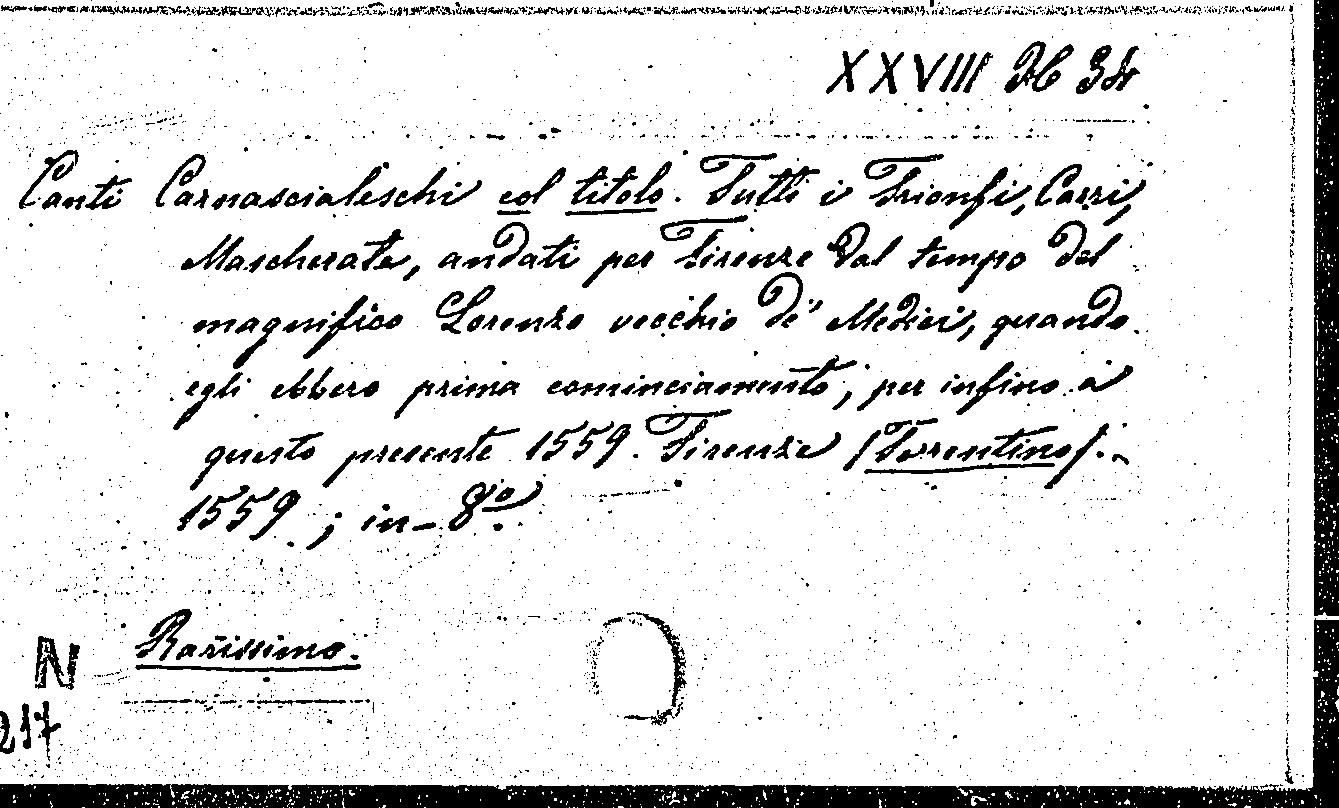 XXVIII Db 34
Canti Carnascialeschi col titolo. Tutti i Trionfi, Carri,
Mascherate, andati per Firenze dal tempo del
magnifico Lorenzo vecchio de' Medici, quando
egli ebbero prima cominciamento; per infino a
questo presente 1559. Firenze (Torrentino).
1559.; in-8º.
Rarissimo.
N
217